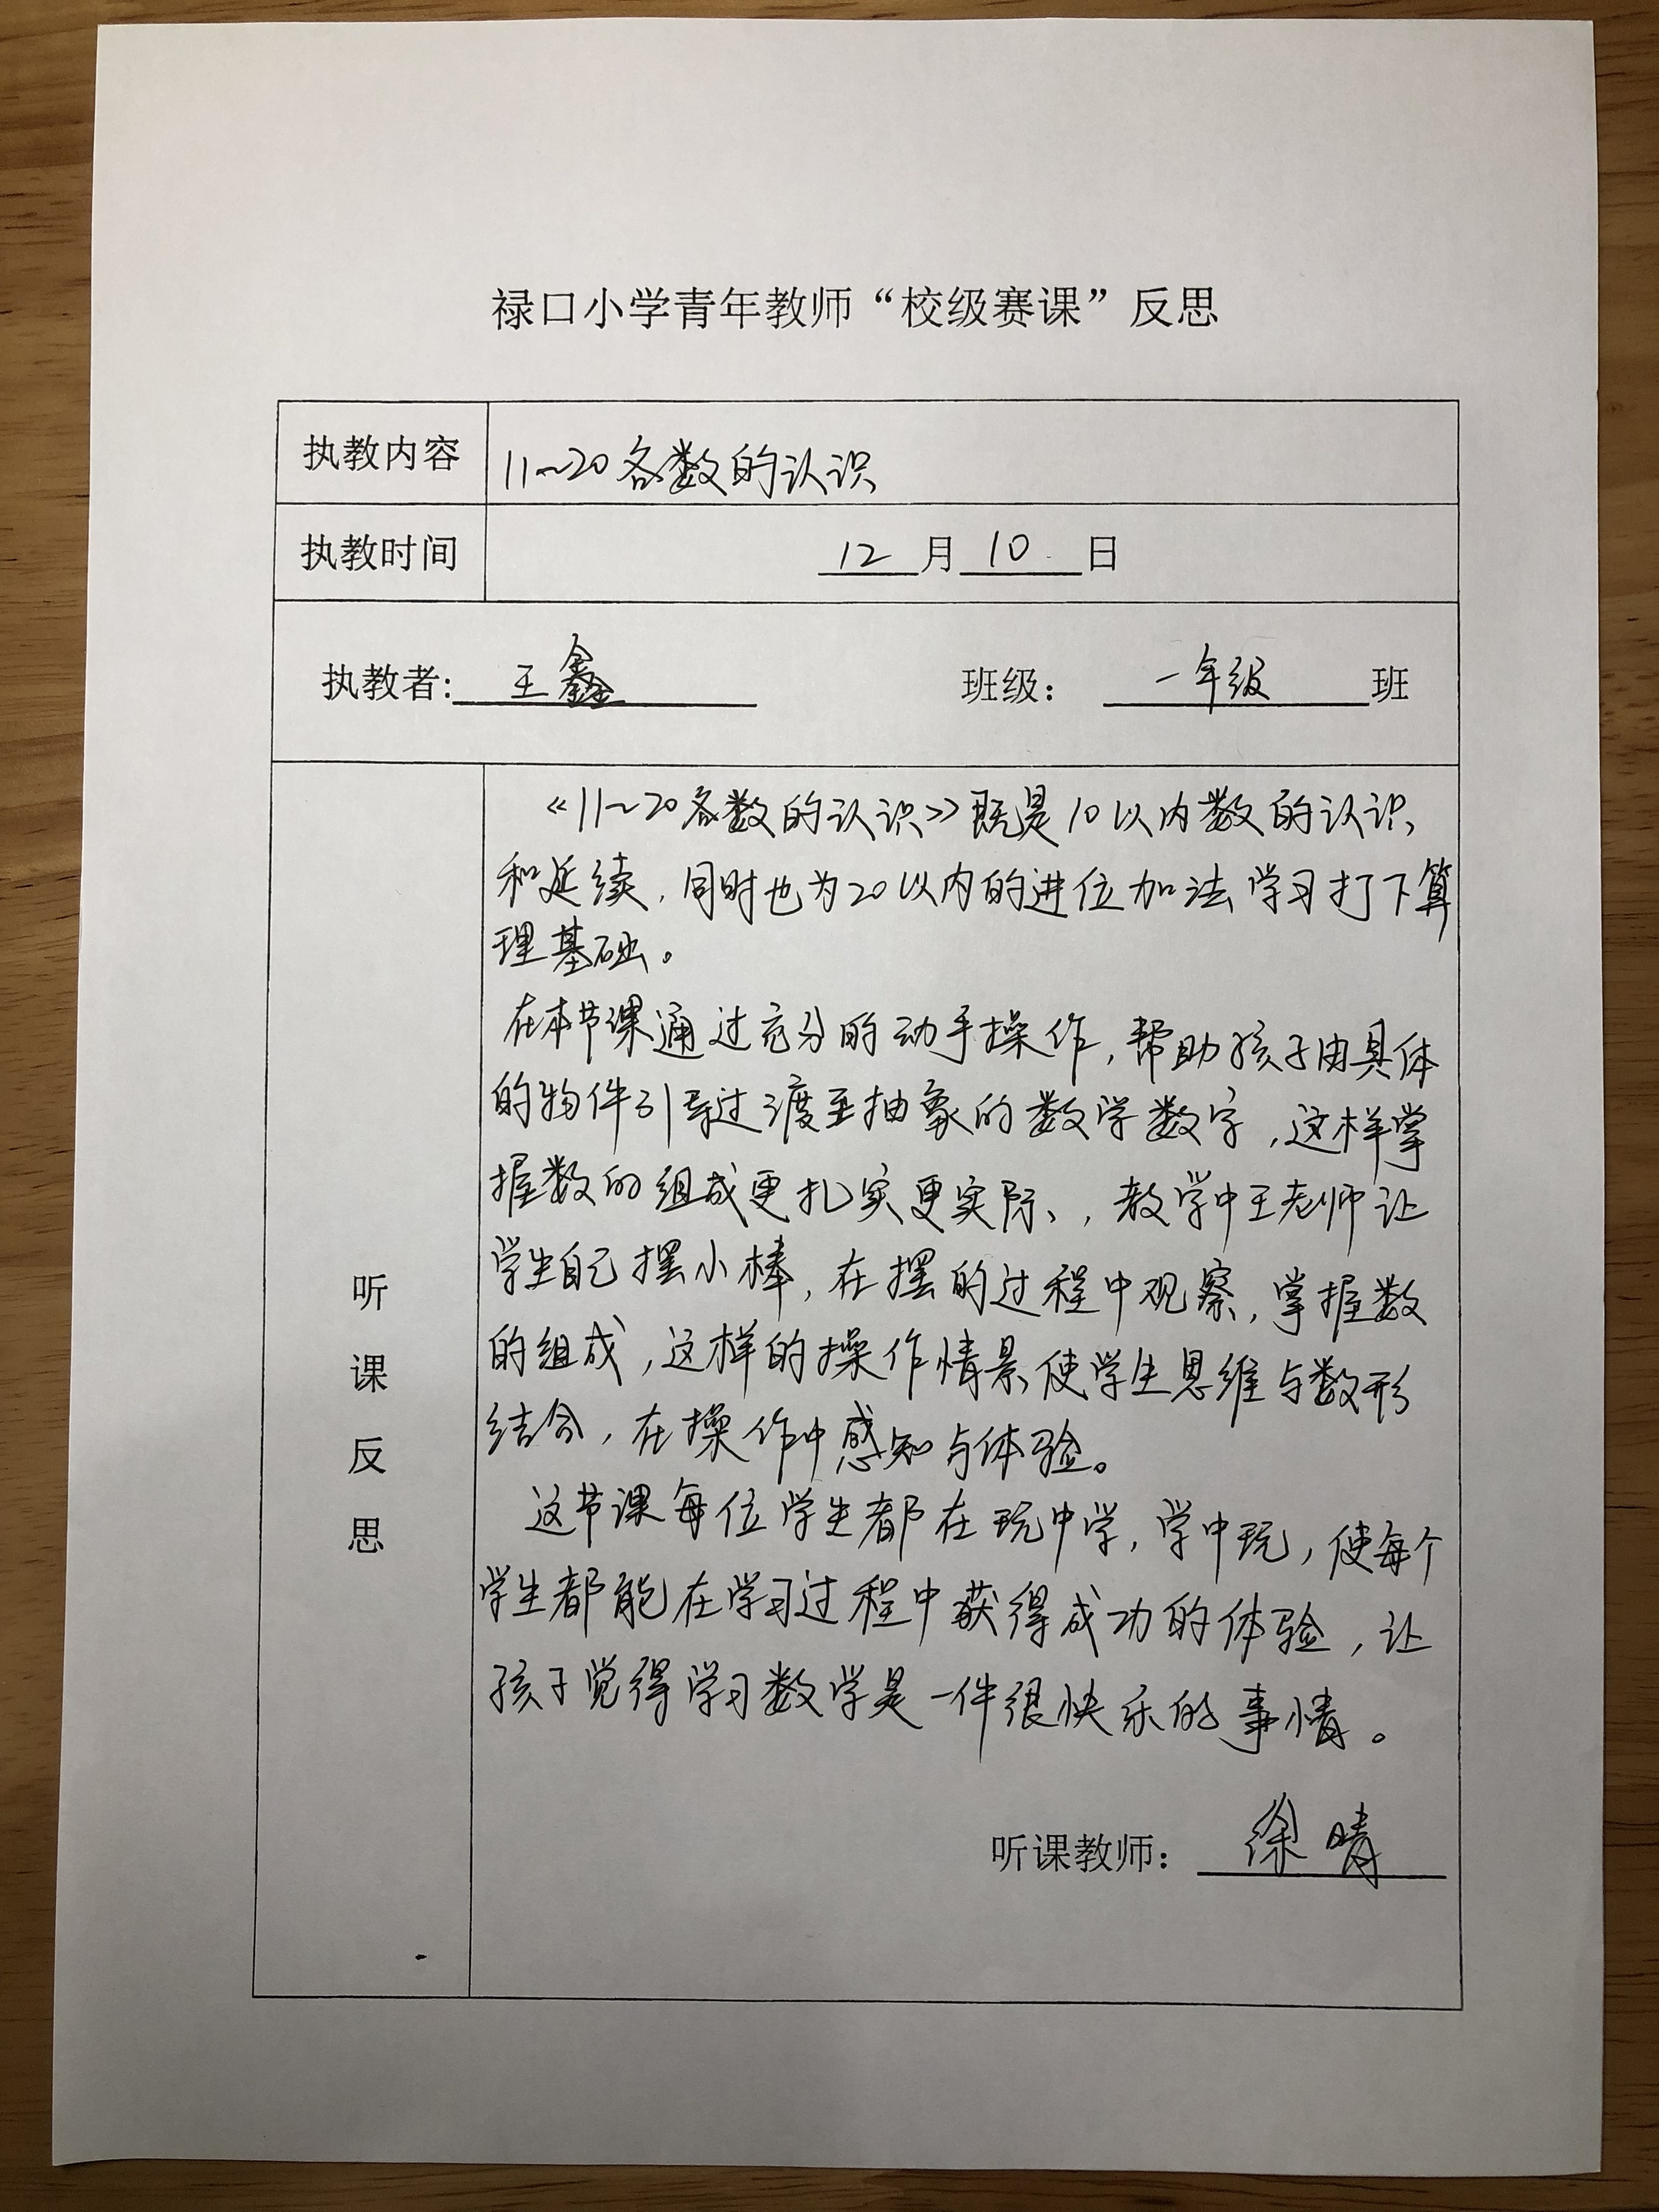 禄口小学青年教师“校级赛课”反思
执教内容
11~20各数的认识
执教时间
12月10日
执教者:王鑫 班级：一年级班
听课反思
《11~20各数的认识》既是10以内数的认识
和延续，同时也为20以内的进位加法学习打下算
理基础。
在本节课通过充分的动手操作，帮助孩子由具体
的物件引导过渡至抽象的数学数字，这样掌
握数的组成更扎实更实际、，教学中王老师让
学生自己摆小棒，在摆的过程中观察，掌握数
的组成，这样的操作情景使学生思维与数形
结合，在操作中感知与体验。
这节课每位学生都在玩中学，学中玩，使每个
学生都能在学习过程中获得成功的体验，让
孩子觉得学习数学是一件很快乐的事情。
听课教师：徐晴